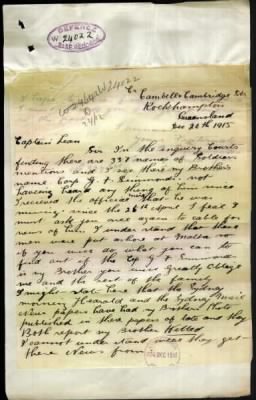 DEFENCE
W 24022
C/- Cambells Cambridge Est
Rockhampton
Queensland
Dec 20th 1915
Captain Lean
Sir I'm the enquiry Courts
finding there are 337 names of Soldiers
mentions and I see there my Brothers
name Corp G F Simmonds. not
haveing heard any thing of him since
I received the official that he was
missing since the 26th April I feel I
must ask you once again to cable for
news of him. I understand that there
men were put ashore at Malta so
if you will do what you can to
find out if the Cp G F Simmonds
is my Brother you will greatly oblige
me and the rest of the family
I might state here that the Sydney
morning Hearald and the Sydney
News papers have had my Brothers Photo
published in there papers of late and they
Both report my Brother Killed
I cannot under stand were they get
there News from
DEC 1915